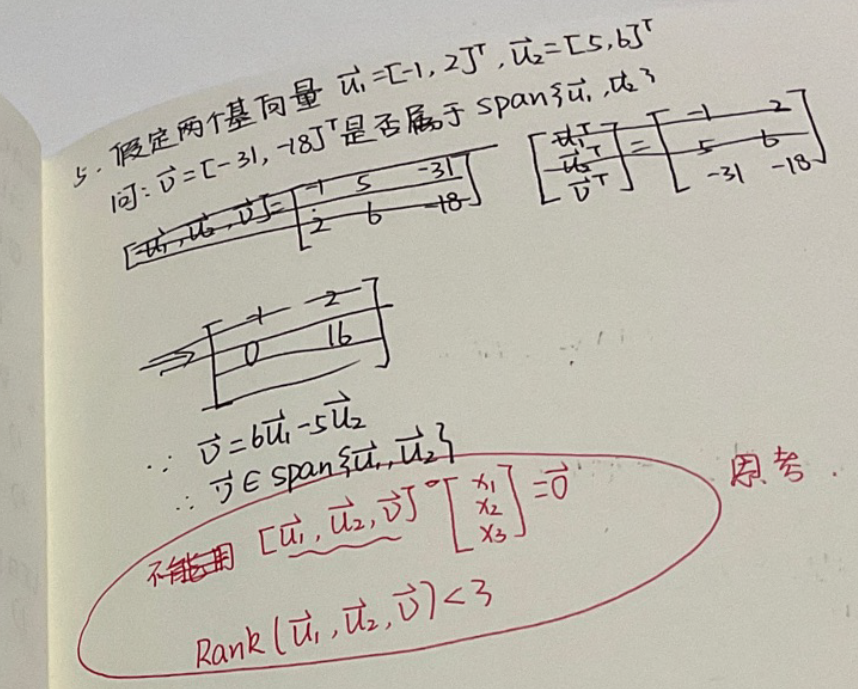 5. 假定两个基向量 u⃗₁=[-1,2]ᵀ, u⃗₂=[5,6]ᵀ
问: v⃗=[-31,-18]ᵀ是否属于 span{u⃗₁,u⃗₂}
[u⃗₁,u⃗₂,v⃗]=[-1 5 -31
2 6 -18]
[u⃗₁ᵀ
u⃗₂ᵀ
v⃗ᵀ]=[-1 2
5 6
-31 -18]
⇒[-1 2
0 16]
∵ v⃗=6u⃗₁-5u⃗₂
∴ v⃗∈span{u⃗₁,u⃗₂}
思考.
不能用 [u⃗₁,u⃗₂,v⃗]∘[x₁
x₂
x₃]=0⃗
Rank(u⃗₁,u⃗₂,v⃗)<3